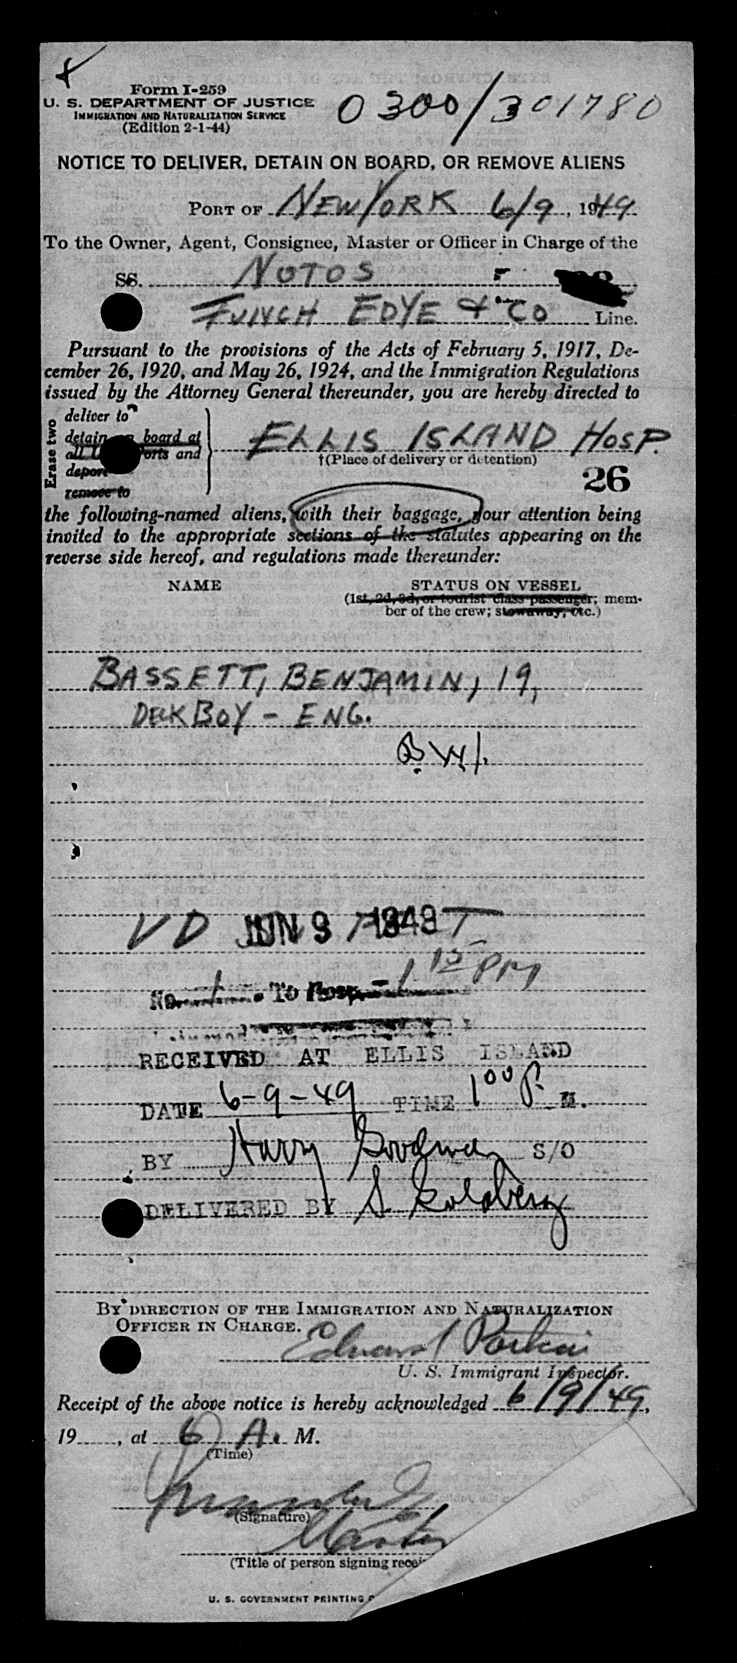 Form I-259
U. S. DEPARTMENT OF JUSTICE
IMMIGRATION AND NATURALIZATION SERVICE
(Edition 2-1-44)
0300/301780
NOTICE TO DELIVER, DETAIN ON BOARD, OR REMOVE ALIENS
PORT OF NEW YORK 6/9, 1949
To the Owner, Agent, Consignee, Master or Officer in Charge of the
SS. NOTOS
FUNCH EDYE & CO Line.
Pursuant to the provisions of the Acts of February 5, 1917, De-
cember 26, 1920, and May 26, 1924, and the Immigration Regulations
issued by the Attorney General thereunder, you are hereby directed to
Erase two
deliver to
detain on board at
all U ports and
deport
remove to
ELLIS ISLAND HOSP.
†(Place of delivery or detention)
26
the following-named aliens, with their baggage, your attention being
invited to the appropriate sections of the statutes appearing on the
reverse side hereof, and regulations made thereunder:
NAME STATUS ON VESSEL
(1st, 2d, 3d, or tourist class passenger; mem-
ber of the crew; stowaway, etc.)
BASSETT, BENJAMIN, 19,
DECK BOY - ENG.
VD JUN 9 1949
1 15 PM
No. 1 To Hosp.
RECEIVED AT ELLIS ISLAND
DATE 6-9-49 TIME 1 00 P. M.
BY Harry Goodman S/O
DELIVERED BY S Goldberg
BY DIRECTION OF THE IMMIGRATION AND NATURALIZATION
OFFICER IN CHARGE.
Edward Parkin
U. S. Immigrant Inspector.
Receipt of the above notice is hereby acknowledged 6/9/49,
19 , at 6 A. M.
(Time)
(Signature)
Master
(Title of person signing rece
U. S. GOVERNMENT PRINTING